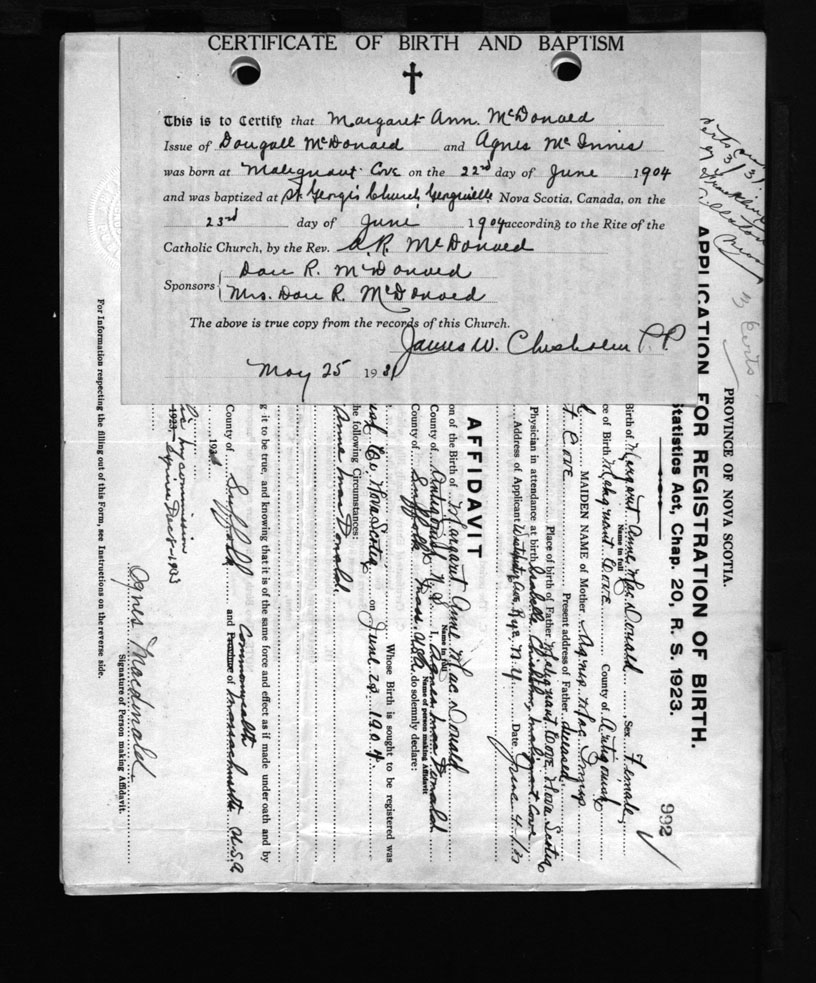 CERTIFICATE OF BIRTH AND BAPTISM
This is to Certify that Margaret Ann. McDonald
Issue of Dougall McDonald and Agnes McInnis
was born at Malignant Cove on the 22nd day of June 1904
and was baptized at St George's Church, Georgeville Nova Scotia, Canada, on the
23rd day of June 1904 according to the Rite of the
Catholic Church, by the Rev. A. R. McDonald
Sponsors { Dan R. McDonald
Mrs. Dan R. McDonald
The above is true copy from the records of this Church.
James W. Chisholm P.P.
May 25 1931
3 Certs
PROVINCE OF NOVA SCOTIA.
APPLICATION FOR REGISTRATION OF BIRTH.
Statistics Act, Chap. 20, R. S. 1923.
992
Birth of Margaret Anne MacDonald Sex Female
Name in full
ce of Birth Malignant Cove County of Antigonish
MAIDEN NAME of Mother Agnes Mac Innis
t Cove Present address of Father deceased
Place of birth of Father Malignant Cove, Nova Scotia
Physician in attendance at birth Malignant Cove
Address of Applicant N.Y. Date June 4
AFFIDAVIT
on of the Birth of Margaret Anne Mac Donald
Name in full
County of Antigonish N.S. I, Agnes Mac Donald
Name of person making Affidavit
County of Suffolk Mass. USA, do solemnly declare:
Whose Birth is sought to be registered was
Co. Nova Scotia on June 22 1904
he following Circumstances:
Anne MacDonald.
g it to be true, and knowing that it is of the same force and effect as if made under oath and by
County of Suffolk and Province of Commonwealth Massachusetts U.S.A
193
my commission
Agnes Macdonald.
Signature of Person making Affidavit.
For Information respecting the filling out of this Form, see Instructions on the reverse side.